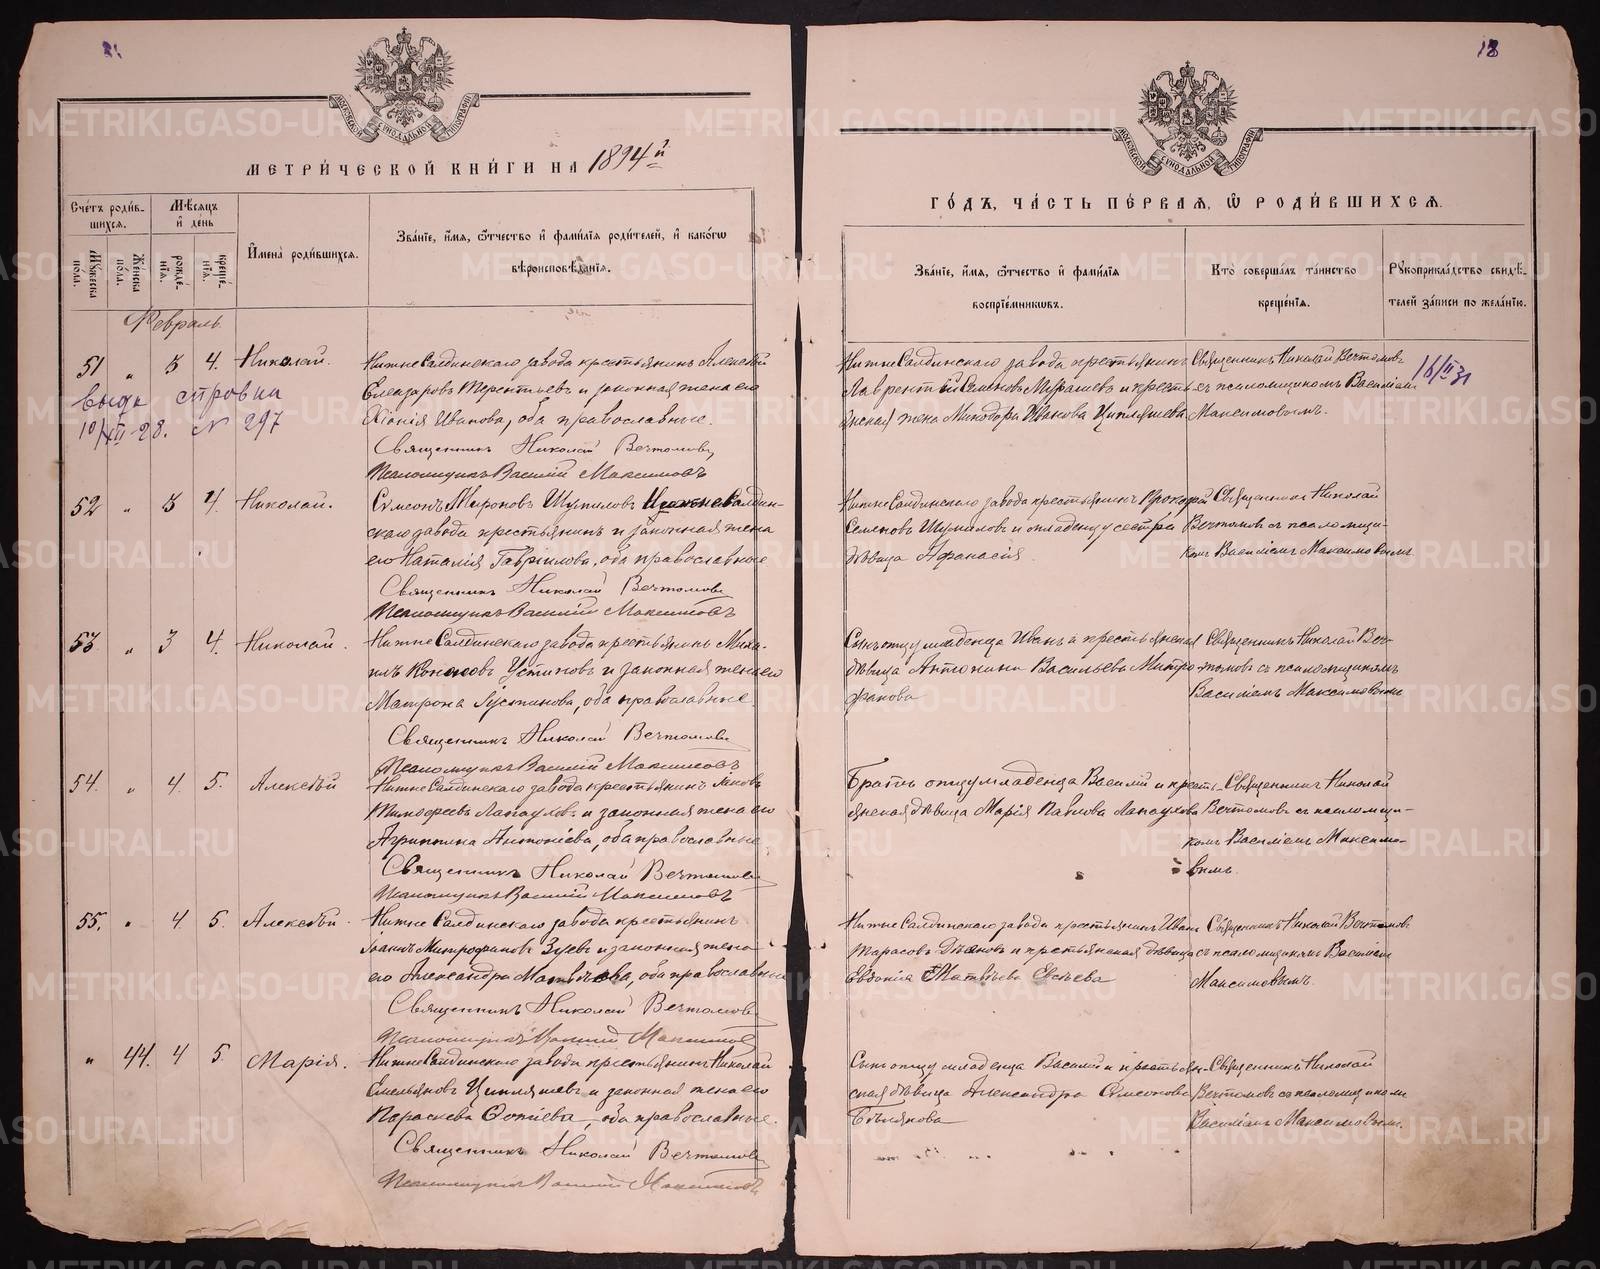 18
МЕТРИ́ЧЕСКОЙ КНИ́ГИ НА 1894й
МОСКОВСКОЙ СѴНОДАЛЬНОЙ ТИПОГРАФІИ
Сче́тъ роди́в-
шихсѧ.
Мѣ́сѧцъ
и҆ де́нь
Мꙋ́жска
по́ла.
Же́нска
по́ла.
рожде́-
нїѧ.
креще́-
нїѧ.
И҆мена̀ роди́вшихсѧ.
Зва́нїе, и҆́мѧ, ѻ҆́тчество и҆ фамѝлїѧ роди́телей, и҆ како́гѡ
вѣроисповѣ́данїѧ.
Февраль.
51 „ 3 4. Николай.
Нижне Салдинскаго завода крестьянинъ Алексѣй
Елеазаровъ Терентьевъ и законная жена его
Хіонія Иванова, оба православные.
Священникъ Николай Вечтомовъ
Псаломщикъ Василій Максимовъ
10/XII 28. № 297
52 „ 3 4. Николай.
Сѵмеонъ Мироновъ Шумиловъ Нижне Салдин-
скаго завода крестьянинъ и законная жена
его Наталія Гаврилова, оба православные
Священникъ Николай Вечтомовъ
Псаломщикъ Василій Максимовъ
53 „ 3 4. Николай.
Нижне Салдинскаго завода крестьянинъ Миха-
илъ Устиновъ и законная жена его
Матрона Іустинова, оба православные
Священникъ Николай Вечтомовъ
Псаломщикъ Василій Максимовъ
54. „ 4. 5. Алексѣй
Нижне Салдинскаго завода крестьянинъ Іаковъ
Тимофеевъ Лапауховъ и законная жена его
Агриппина Антоніева, оба православные
Священникъ Николай Вечтомовъ
Псаломщикъ Василій Максимовъ
55. „ 4 5. Алексѣй.
Нижне Салдинскаго завода крестьянинъ
Іоаннъ Митрофановъ Зуевъ и законная жена
его Александра Матвѣева, оба православные
Священникъ Николай Вечтомовъ
Псаломщикъ Василій Максимовъ
„ 44. 4 5. Марія.
Нижне Салдинскаго завода крестьянинъ Николай
Емельяновъ Цыпляшевъ и законная жена его
Параскева Фотіева, оба православные.
Священникъ Николай Вечтомовъ
Псаломщикъ Василій Максимовъ
МОСКОВСКОЙ СѴНОДАЛЬНОЙ ТИПОГРАФІИ
ГО́ДЪ, ЧА́СТЬ ПЕ́РВАѦ, Ѽ РОДИ́ВШИХСѦ.
Зва́нїе, и҆́мѧ, ѻ҆́тчество и҆ фамѝлїѧ
воспрїе́мникѡвъ.
Кто̀ соверша́лъ та́инство
креще́нїѧ.
Рꙋкоприкла́дство свидѣ́-
телей за́писи по жела́нїю.
Нижне Салдинскаго завода крестьянинъ
Лаврентій Семеновъ Мурашевъ и кресть-
янская жена Иванова Цыпляшева
Священникъ Николай Вечтомовъ
съ псаломщикомъ Василіемъ
Максимовымъ.
16/II 31
Нижне Салдинскаго завода крестьянинъ Прокофій
Семеновъ Шумиловъ и отца младенцу сестра
дѣвица Афанасія
Священникъ Николай
Вечтомовъ съ псаломщи-
комъ Василіемъ Максимовымъ
Сынъ отцу младенца Иванъ и крестьянская
дѣвица Антонина Васильева Митро-
фанова
Священникъ Николай Веч-
томовъ съ псаломщикомъ
Василіемъ Максимовымъ
Братъ отцу младенца Василій и кресть-
янская дѣвица Марія Павлова Лапаухова
Священникъ Николай
Вечтомовъ съ псаломщи-
комъ Василіемъ Максимо-
вымъ.
Нижне Салдинскаго завода крестьянинъ Иванъ
Тарасовъ и крестьянская дѣвица
Евдокія Матвѣева Евсѣева
Священникъ Николай Вечтомовъ
съ псаломщикомъ Василіемъ
Максимовымъ.
Сынъ отцу младенца Василій и крестьян-
ская дѣвица Александра Сѵмеонова
Бѣлянова
Священникъ Николай
Вечтомовъ съ псаломщикомъ
Василіемъ Максимовымъ.
METRIKI.GASO-URAL.RU